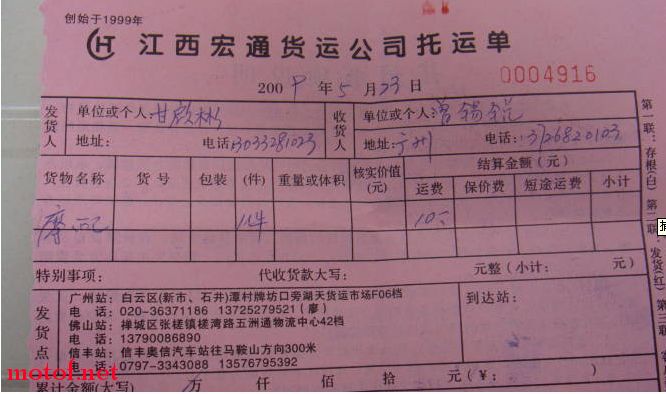 创始于1999年
CH 江西宏通货运公司托运单
2009 年 5 月 23 日 0004916
发货人 单位或个人: 甘啟彬 收货人 单位或个人: 曾锡锐
地址: 电话: 13033281023 地址: 广州 电话: 13726820103
货物名称 货号 包装 (件) 重量或体积 核实价值(元) 结算金额(元)
运费 保价费 短途运费 小计
摩配 1件 10元
特别事项: 代收货款大写: 元整(小计: 元)
发货点 广州站: 白云区(新市、石井)潭村牌坊口旁湖天货运市场F06档 到达站:
电 话: 020-36371186 13725279521(廖)
佛山站: 禅城区张槎镇槎湾路五洲通物流中心42档
电 话: 13790086890
信丰站: 信丰奥信汽车站往马鞍山方向300米
电 话: 0797-3343088 13576795392
累计金额(大写) 万 仟 佰 拾 元(¥: )
第一联:存根(白) 第二联 发货(红) 第三联
motof.net